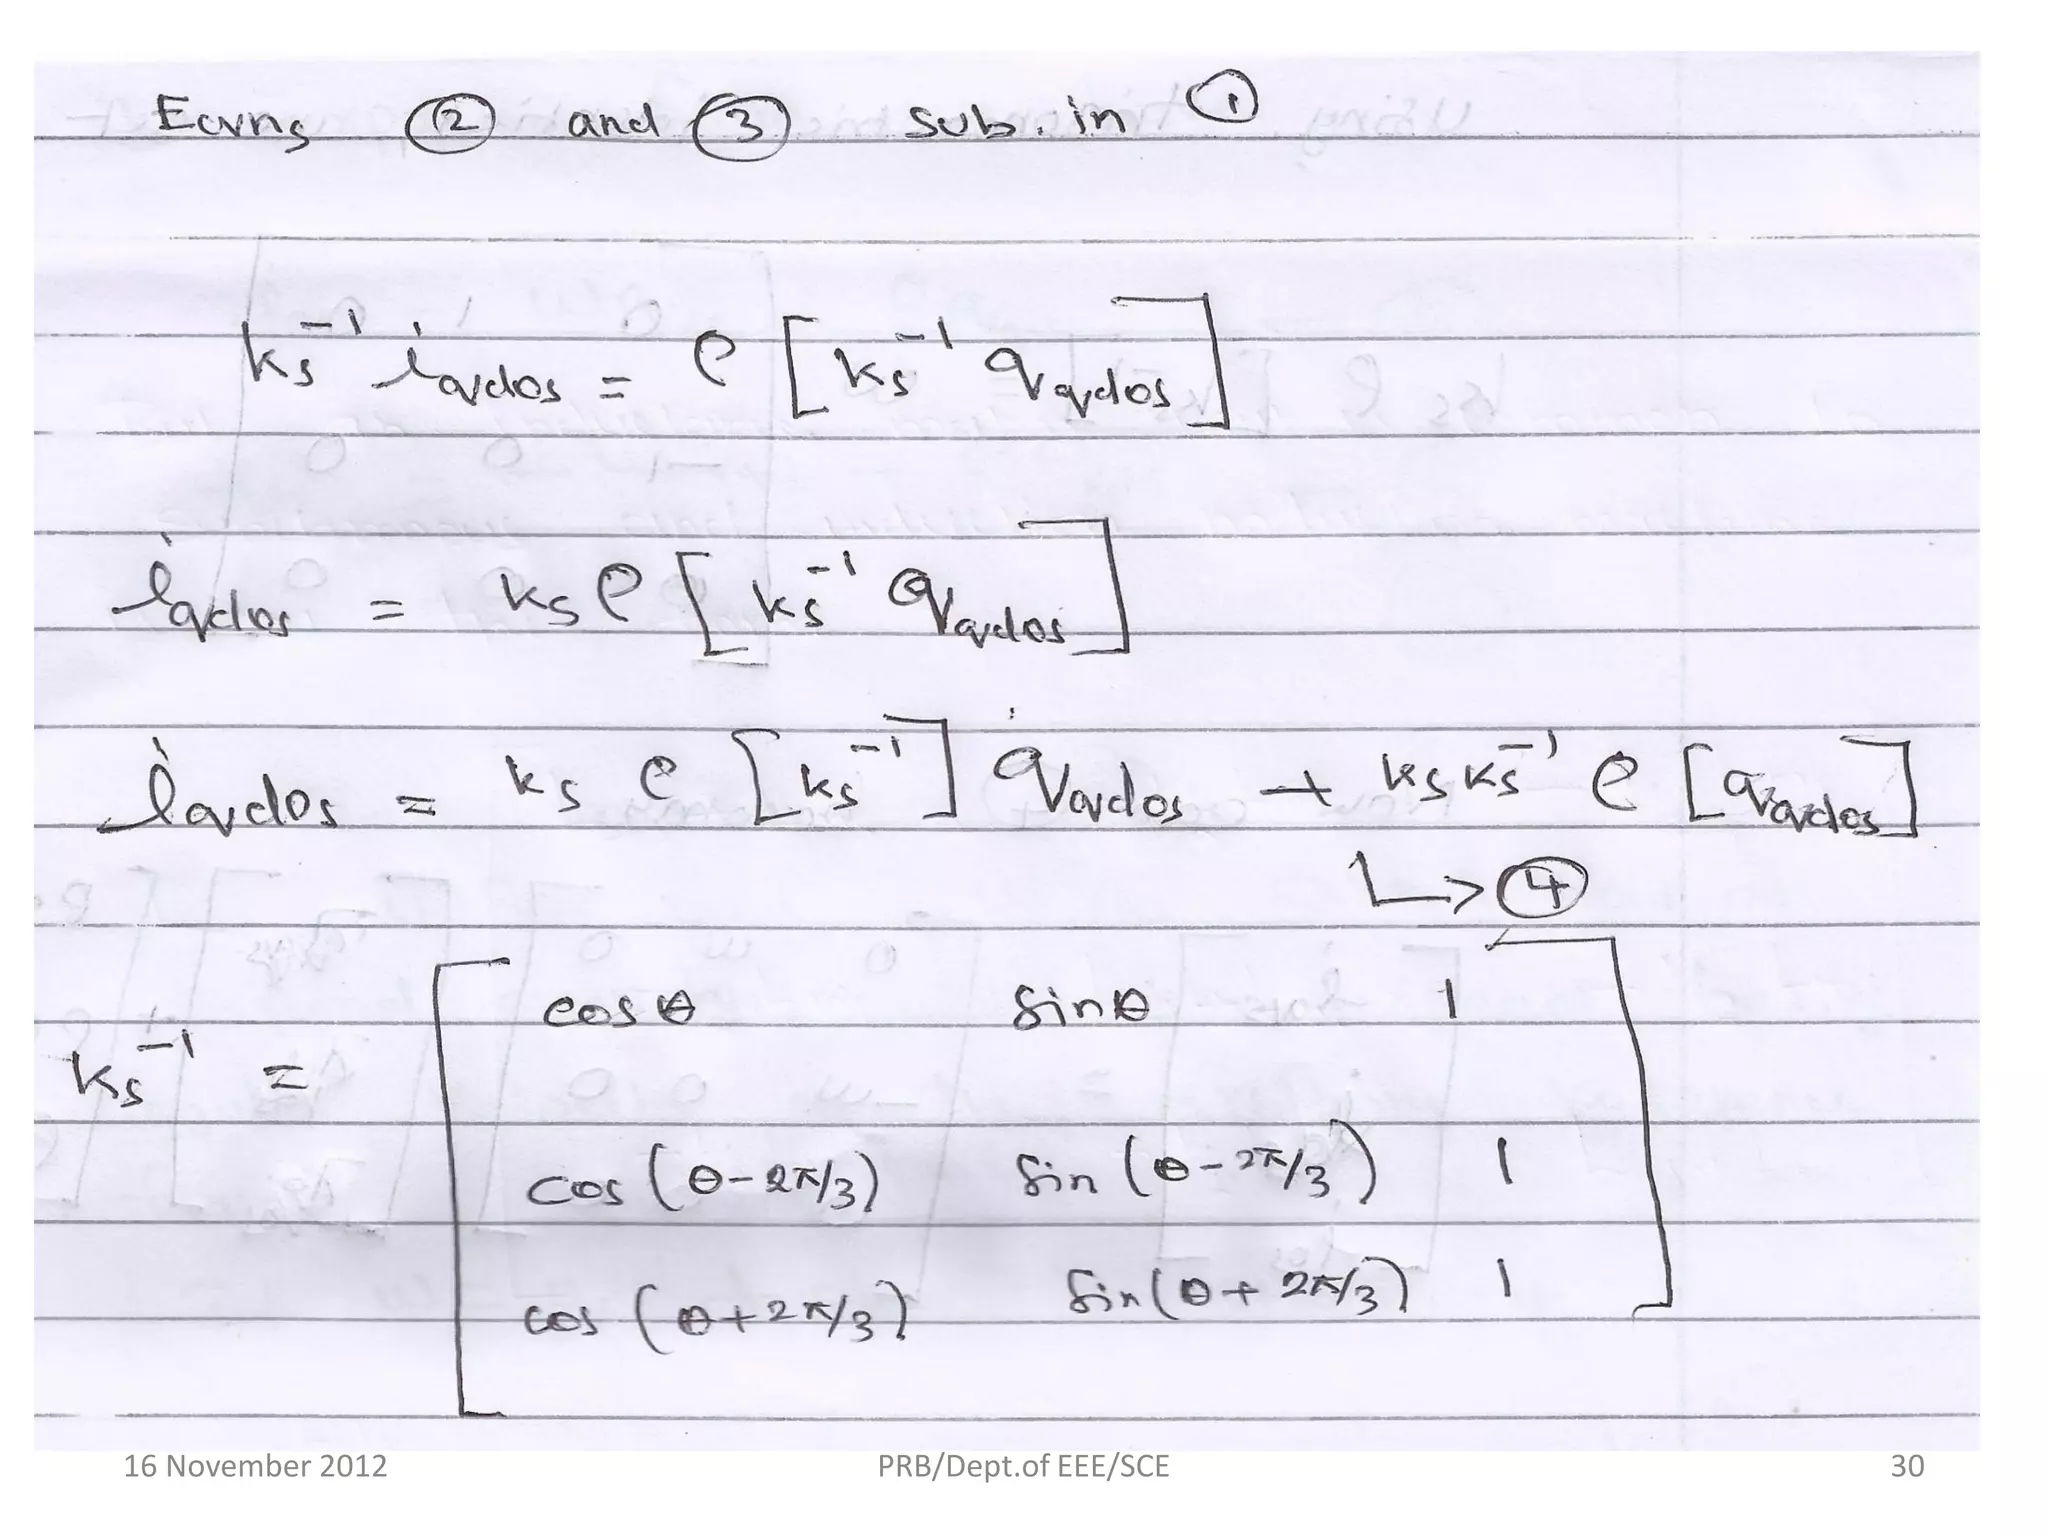 Eqvns ② and ③ sub. in ①
ks⁻¹ iqdos = ρ [ks⁻¹ qqdos]
iqdos = ks ρ [ks⁻¹ qqdos]
iqdos = ks ρ [ks⁻¹] qqdos + ks ks⁻¹ ρ [qqdos]
↳ ④
cosθ sinθ 1
ks⁻¹ =
cos (θ-2π/3) sin (θ-2π/3) 1
cos (θ+2π/3) sin (θ+2π/3) 1
16 November 2012 PRB/Dept.of EEE/SCE 30